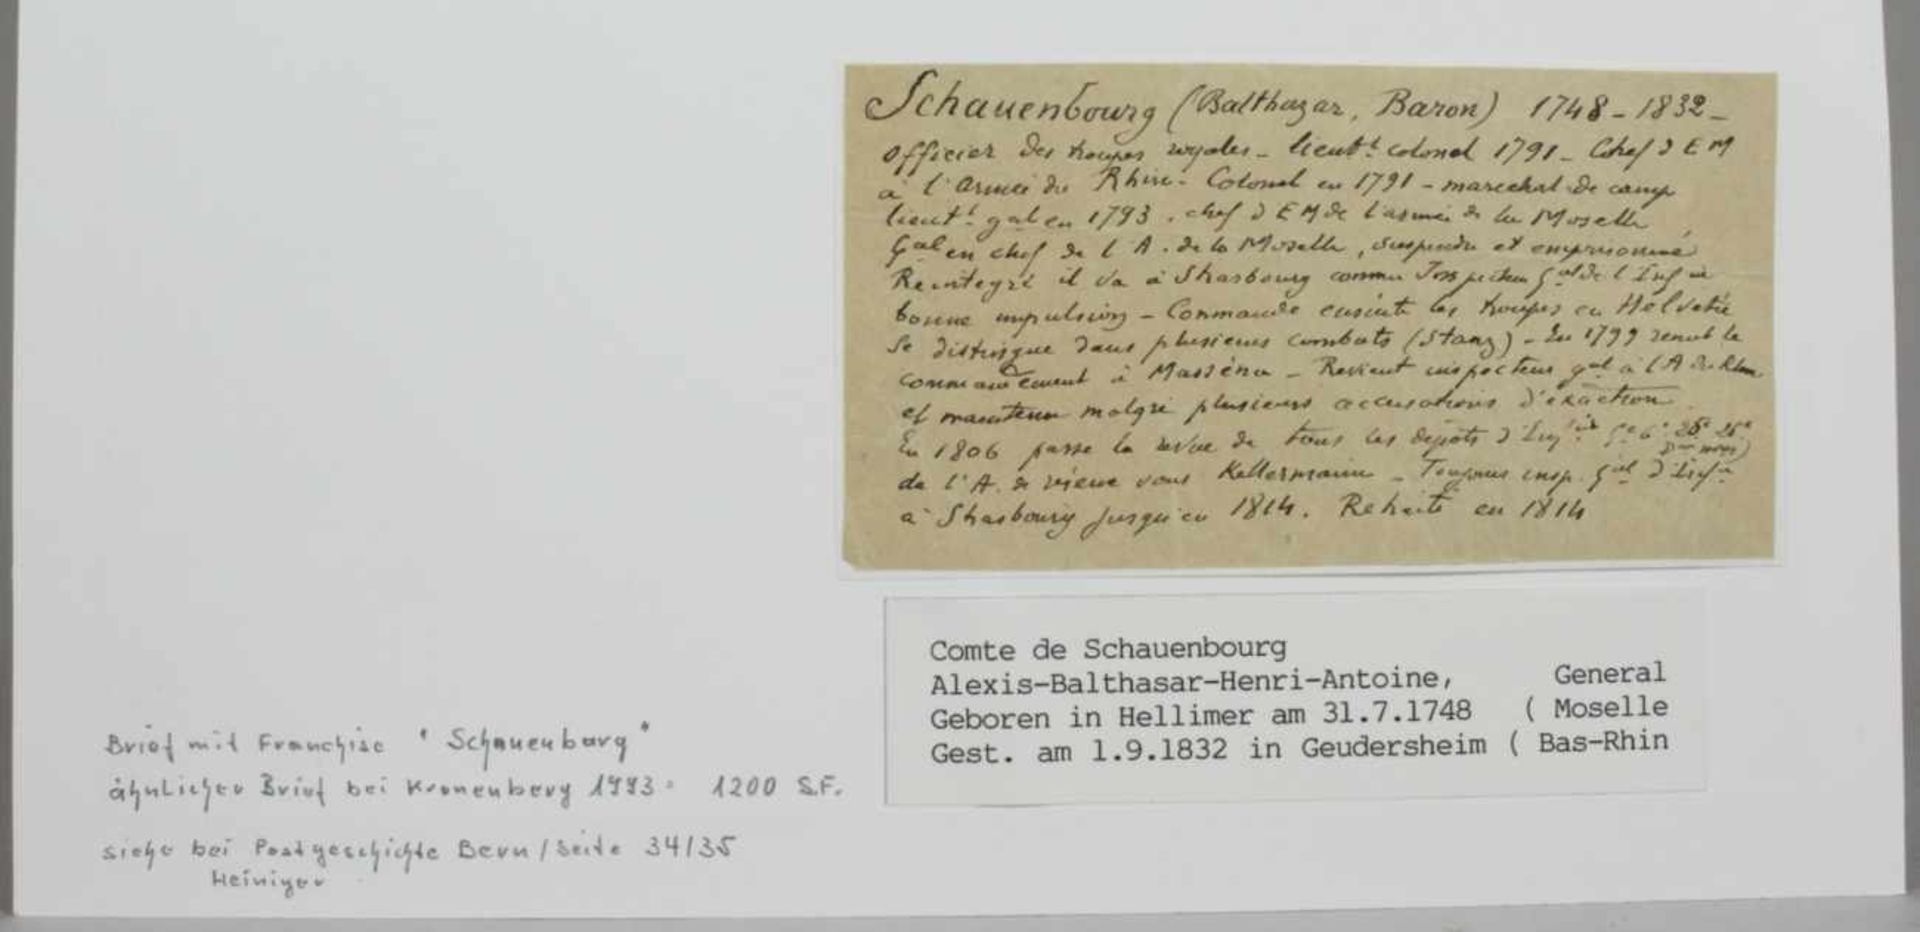 Schauenbourg (Balthazar, Baron) 1748-1832-
officier des troupes royales - lieutt. colonel 1791 - Chef d E M
à l'Armée du Rhin - Colonel en 1791 - marechal de camp
lieutt. gal en 1793. chef d E M de l'armée de la Moselle
Gal en chef de l'A. de la Moselle, suspendu et emprisonné
Reintegré il va à Strasbourg comme Inspecteur Gal de l'Infie
bonne impulsion - Commande ensuite les troupes en Helvétie
Se distingue dans plusieurs combats (Stanz) - En 1799 remet le
commandement à Masséna - Revient inspecteur gal à l'A du Rhin
et maintenu malgré plusieurs accusations d'exaction
En 1806 passe la revue de tous les dépôts d'Infie 5e 6e 26e
de l'A. de réserve sous Kellermann - Toujours insp. Gal d'Infie
à Strasbourg jusqu'en 1814. Retraité en 1814
Comte de Schauenbourg
Alexis-Balthasar-Henri-Antoine, General
Geboren in Hellimer am 31.7.1748 ( Moselle
Gest. am 1.9.1832 in Geudersheim ( Bas-Rhin
Brief mit Franchise "Schauenburg"
ähnlicher Brief bei Kronenberg 1993 = 1200 S.F.
siehe bei Postgeschichte Bern / Seite 34/35
Heiniger